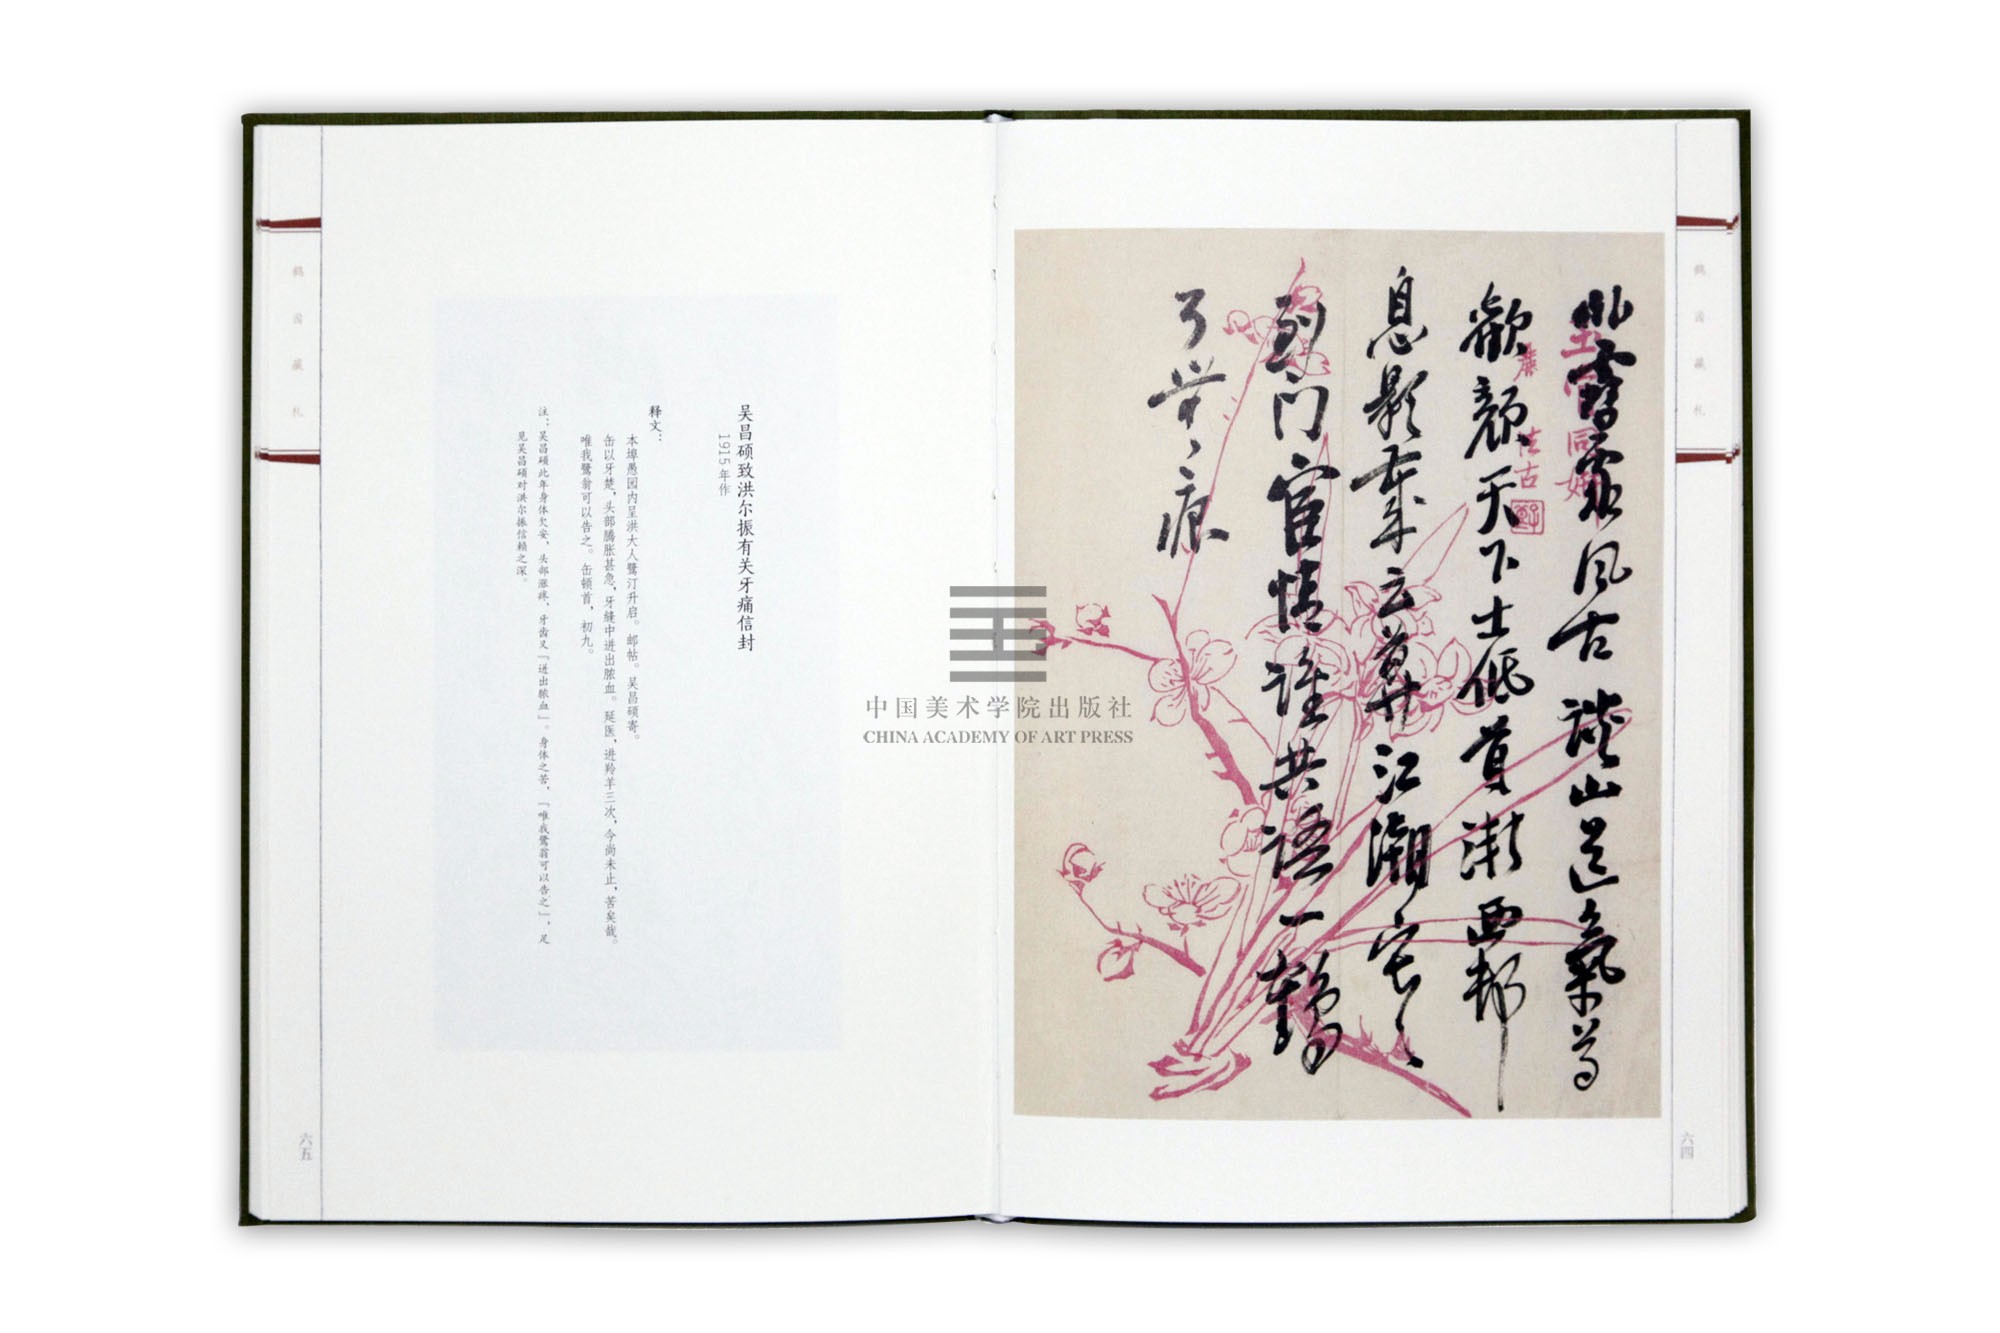 鹤庐藏札
風古談山道氣尊
歡顏天下士低首浙西邨
息影
門宦情誰共語一鶴
了
痕
六四
吴昌硕致洪尔振有关牙痛信封
1915年作
释文：
本埠愚园内呈洪大人鹭汀升启。邮帖。吴昌硕寄。
缶以牙楚，头部腾胀甚急，牙缝中迸出脓血。延医，进羚羊三次，今尚未止，苦矣哉。
唯我鹭翁可以告之。缶顿首，初九。
注：吴昌硕此年身体欠安，头部涨疼，牙齿又「迸出脓血」。身体之苦，「唯我鹭翁可以告之」，足
见吴昌硕对洪尔振信赖之深。
鹤庐藏札
六五
中国美术学院出版社
CHINA ACADEMY OF ART PRESS